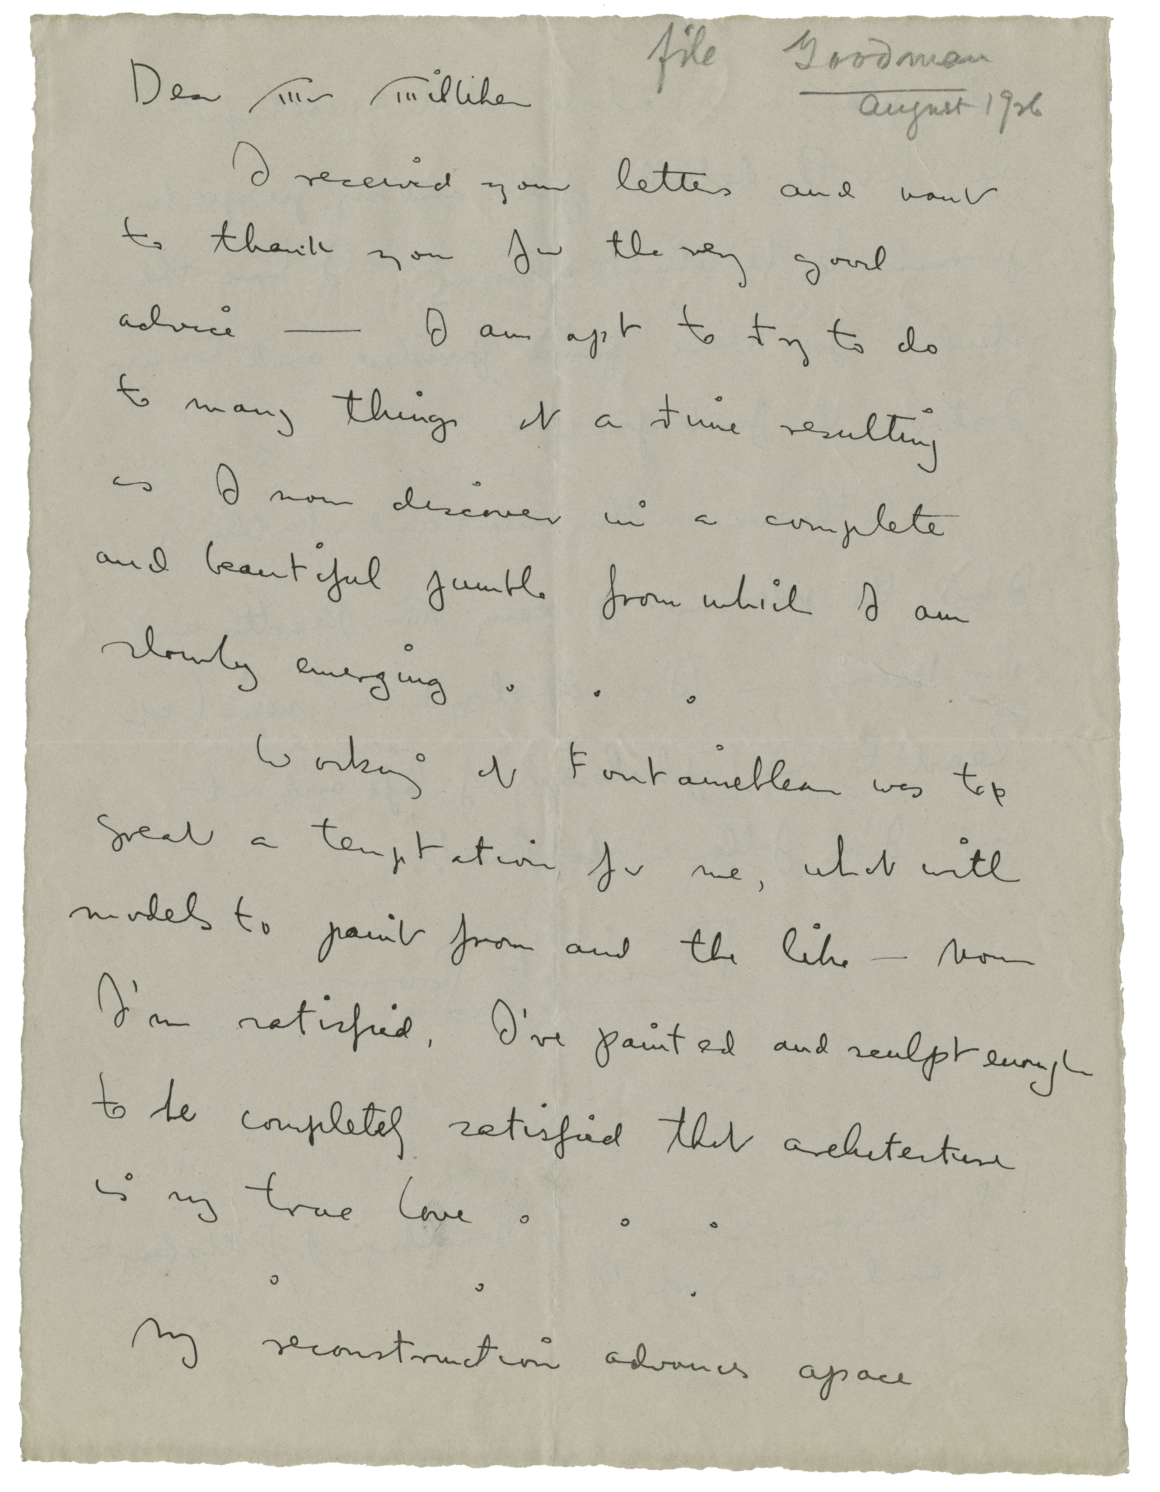 file Goodman
August 1926
Dear Mr Milliken
I received your letters and want
to thank you for the very good
advice — I am apt to try to do
to many things at a time resulting
as I now discover in a complete
and beautiful jumble from which I am
slowly emerging . . .
Working at Fontainebleau was too
great a temptation for me, what with
models to paint from and the like — Now
I'm satisfied, I've painted and sculpt enough
to be completely satisfied that architecture
is my true love . . .
. . .
My reconstruction advances apace